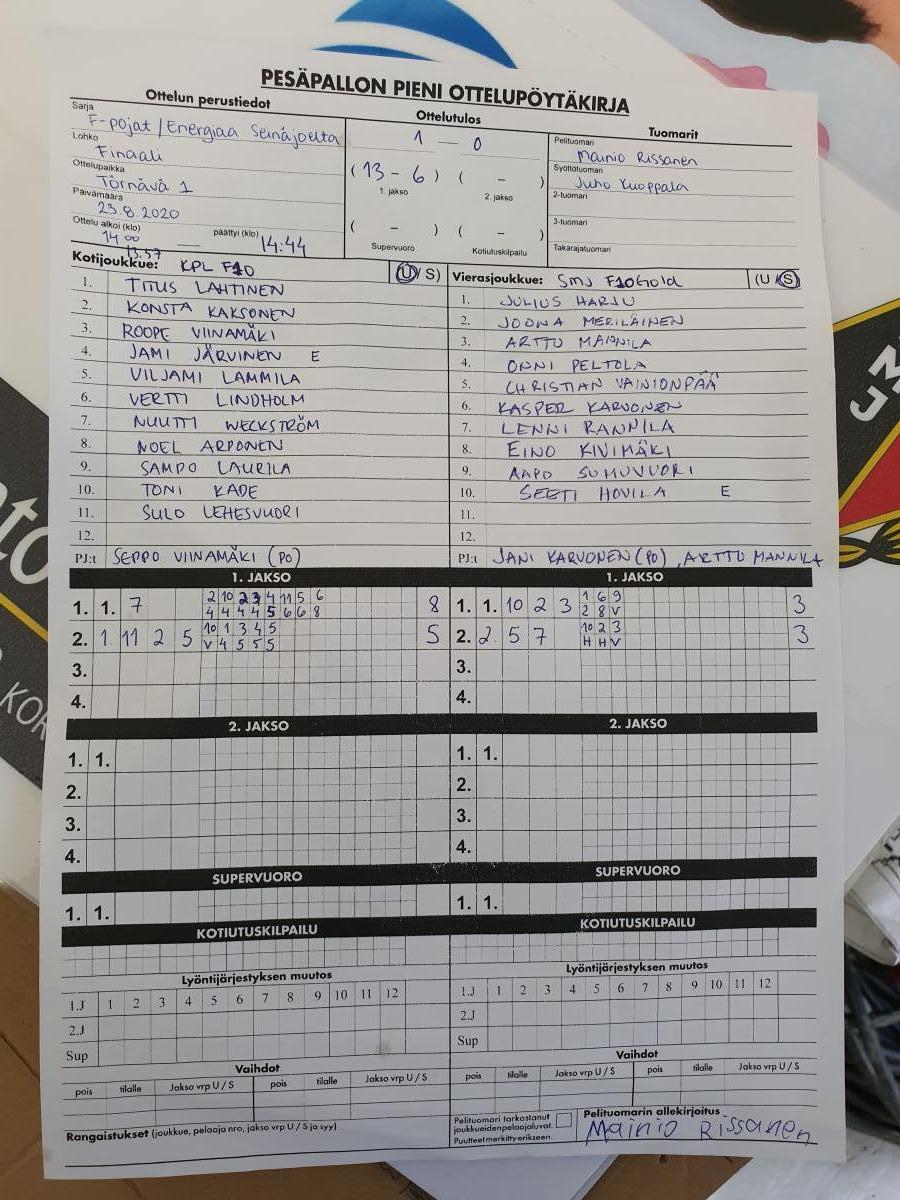 PESÄPALLON PIENI OTTELUPÖYTÄKIRJA
Ottelun perustiedot
Sarja
F-pojat / Energiaa Seinäjoelta
Lohko
Finaali
Ottelupaikka
Törnävä 1
Päivämäärä
23.8.2020
Ottelu alkoi (klo) päättyi (klo) 14:44
14 00
13.57
Ottelutulos
1 – 0
(13 - 6) ( - )
1. jakso 2. jakso
( - ) ( - )
Supervuoro Kotiutuskilpailu
Tuomarit
Pelituomari
Mainio Rissanen
Syöttötuomari
Juho Kuoppala
2-tuomari
3-tuomari
Takarajatuomari
Kotijoukkue: KPL F10 (U / S)
1. TITUS LAHTINEN
2. KONSTA KAKSONEN
3. ROOPE VIINAMÄKI
4. JAMI JÄRVINEN E
5. VILJAMI LAMMILA
6. VERTTI LINDHOLM
7. NUUTTI WECKSTRÖM
8. NOEL ARPONEN
9. SAMPO LAURILA
10. TONI KADE
11. SULO LEHESVUORI
12.
PJ:t SEPPO VIINAMÄKI (PO)
Vierasjoukkue: SMJ F10Gold (U / S)
1. JULIUS HARJU
2. JOONA MERILÄINEN
3. ARTTU MANNILA
4. ONNI PELTOLA
5. CHRISTIAN VAINIONPÄÄ
6. KASPER KARVONEN
7. LENNI RANNILA
8. EINO KIVIMÄKI
9. AAPO SUMUVUORI
10. SEETI HOVILA E
11.
12.
PJ:t JANI KARVONEN (PO), ARTTU MANNILA
1. JAKSO
1. 1. 7 2 10 2 3 4 11 5 6 8
4 4 4 4 5 6 6 8
2. 1 11 2 5 10 1 3 4 5 5
V 4 5 5 5
3.
4.
1. JAKSO
1. 1. 10 2 3 1 6 9 3
2 8 V
2. 2 5 7 10 2 3 3
H H V
3.
4.
2. JAKSO
1. 1.
2.
3.
4.
2. JAKSO
1. 1.
2.
3.
4.
SUPERVUORO
1. 1.
SUPERVUORO
1. 1.
KOTIUTUSKILPAILU
KOTIUTUSKILPAILU
Lyöntijärjestyksen muutos
1.J 1 2 3 4 5 6 7 8 9 10 11 12
2.J
Sup
Lyöntijärjestyksen muutos
1.J 1 2 3 4 5 6 7 8 9 10 11 12
2.J
Sup
Vaihdot
pois tilalle Jakso vrp U / S pois tilalle Jakso vrp U / S
Vaihdot
pois tilalle Jakso vrp U / S pois tilalle Jakso vrp U / S
Rangaistukset (joukkue, pelaaja nro, jakso vrp U / S ja syy)
Pelituomari tarkastanut
joukkueiden pelaajaluvat.
Puutteet merkitty erikseen.
Pelituomarin allekirjoitus
Mainio Rissanen